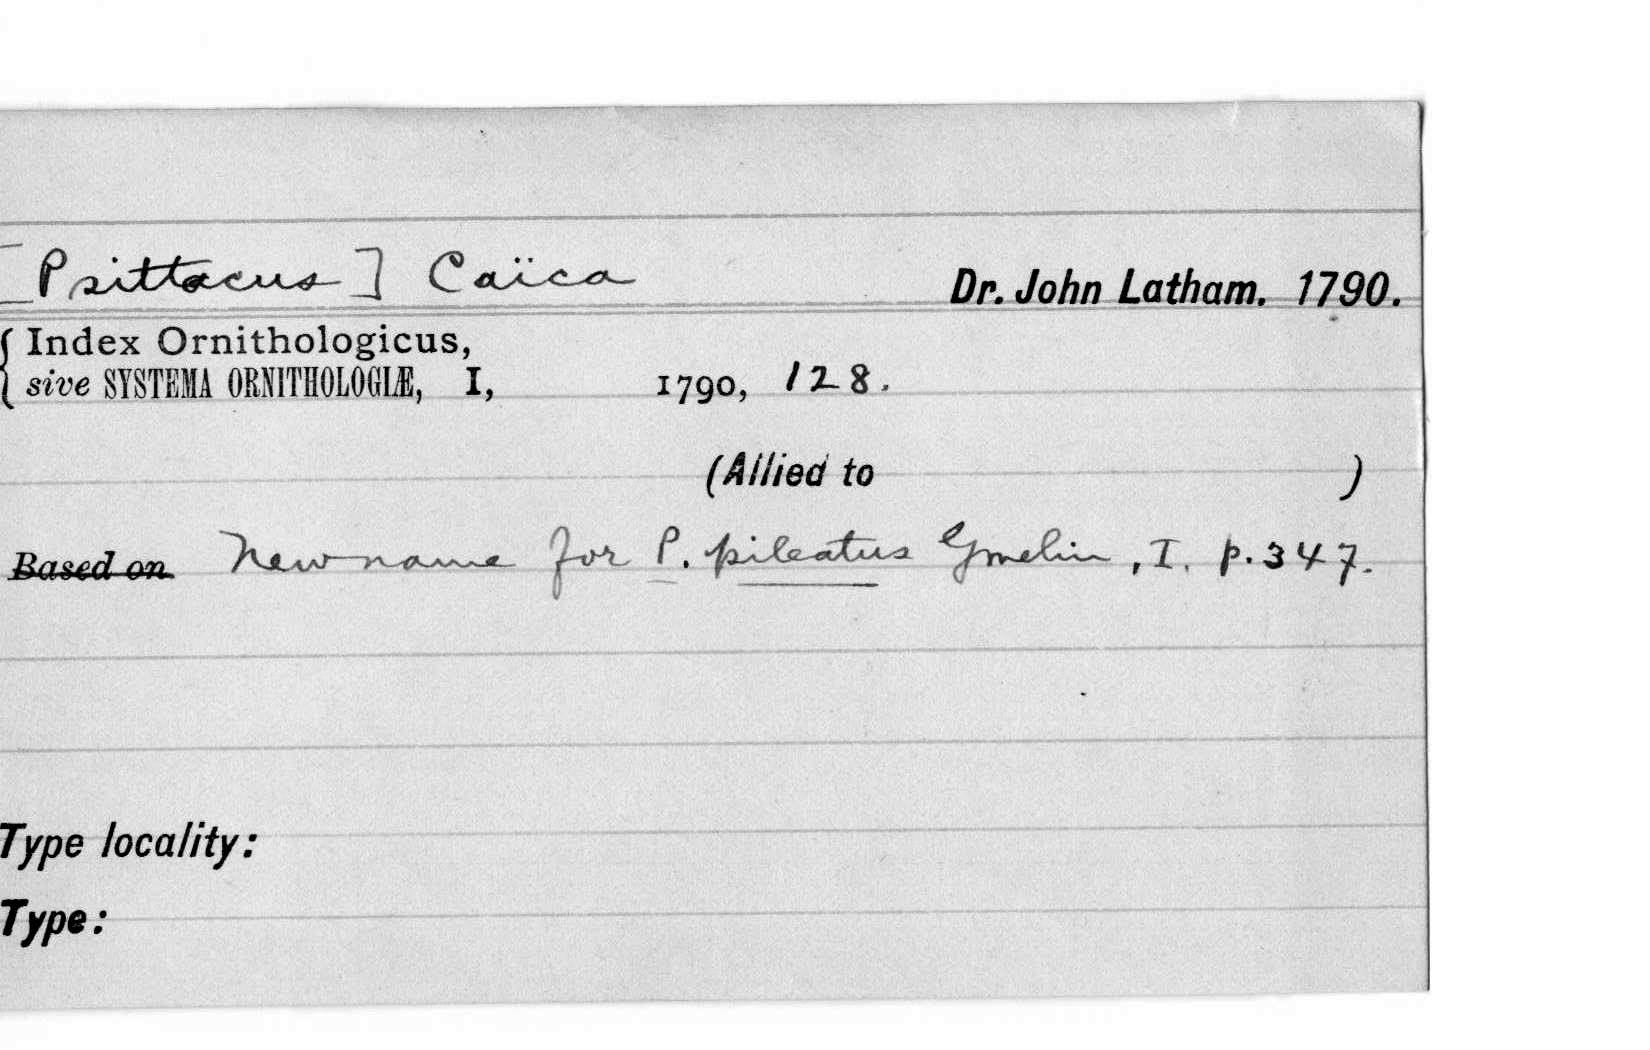 [Psittacus] Caïca Dr. John Latham. 1790.
Index Ornithologicus,
sive SYSTEMA ORNITHOLOGIÆ, I, 1790, 128.
(Allied to )
Based on New name for P. pileatus Gmelin, I. p. 347.
Type locality:
Type: